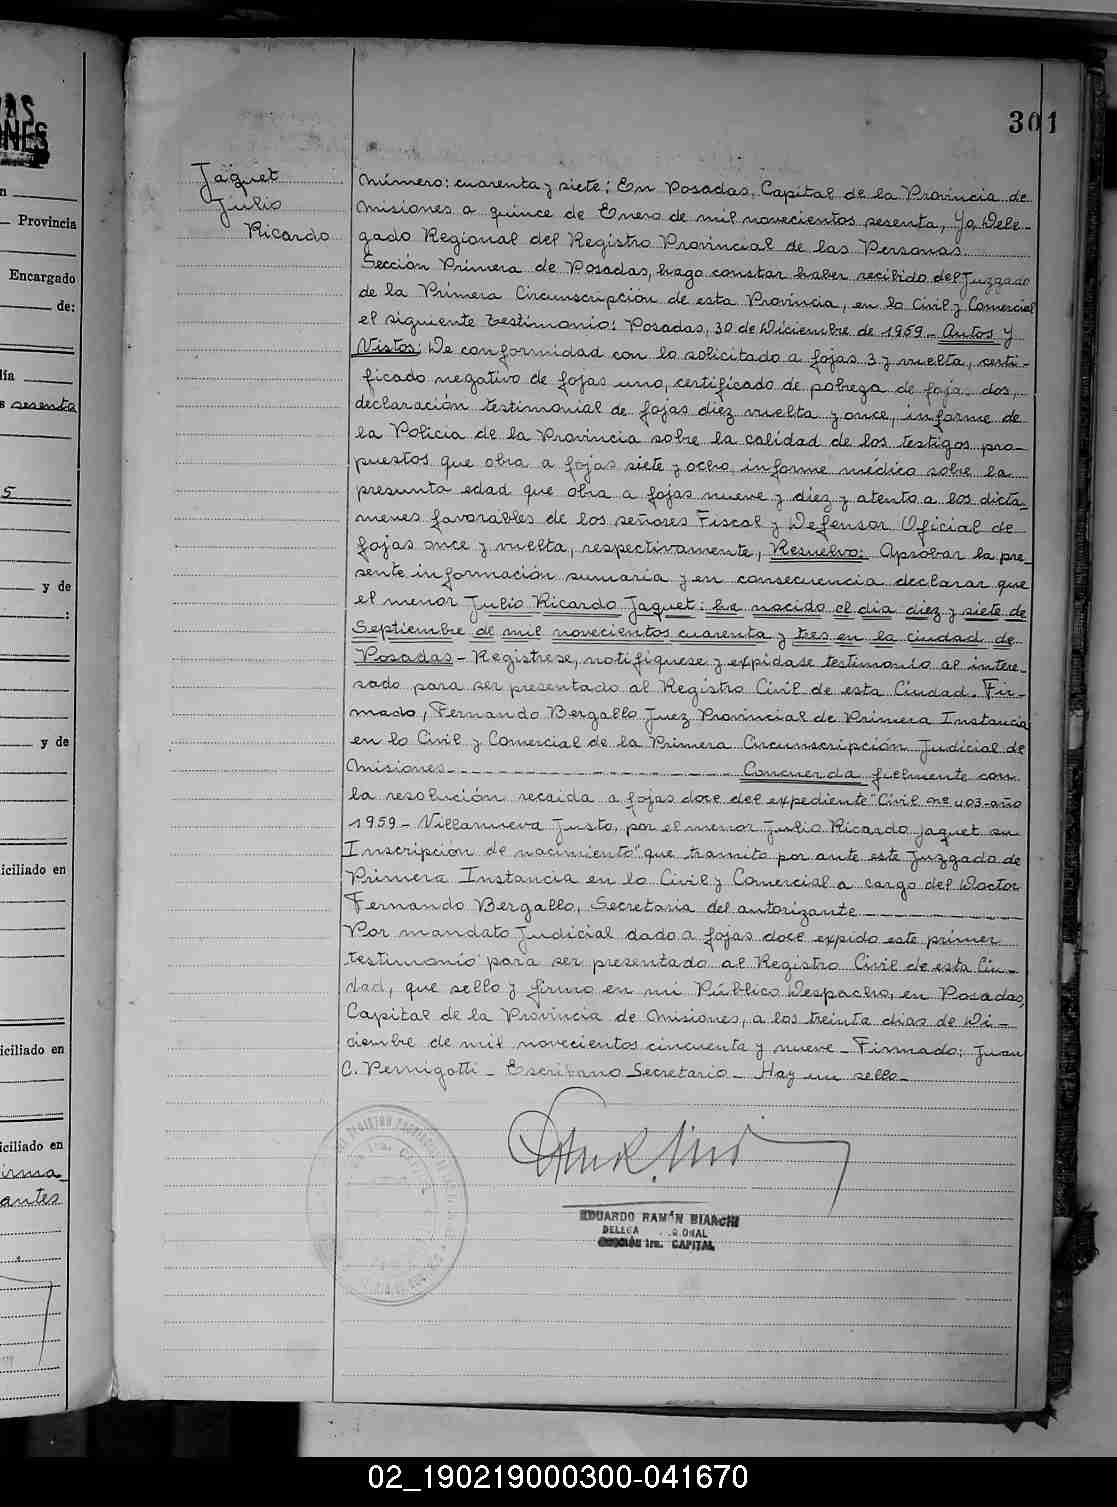 301
VAS
ONES
n
Provincia
Encargado
de:
día
s sesenta
5
y de
:
y de
iciliado en
iciliado en
iciliado en
firma
antes
Jaquet
Julio
Ricardo
Número: cuarenta y siete: En Posadas, Capital de la Provincia de
Misiones a quince de Enero de mil novecientos sesenta, Yo, Dele-
gado Regional del Registro Provincial de las Personas
Sección Primera de Posadas, hago constar haber recibido del Juzgado
de la Primera Circunscripción de esta Provincia, en lo Civil y Comercial
el siguiente testimonio: Posadas, 30 de Diciembre de 1959_ Autos y
Vistos: De conformidad con lo solicitado a fojas 3 y vuelta, certi-
ficado negativo de fojas uno, certificado de pobreza de fojas dos,
declaración testimonial de fojas diez vuelta y once, informe de
la Policia de la Provincia sobre la calidad de los testigos pro-
puestos que obra a fojas siete y ocho, informe médico sobre la
presunta edad que obra a fojas nueve y diez y atento a los dicta-
menes favorables de los señores Fiscal y Defensor Oficial de
fojas once y vuelta, respectivamente, Resuelvo: Aprobar la pre-
sente información sumaria y en consecuencia declarar que
el menor Julio Ricardo Jaquet: ha nacido el día diez y siete de
Septiembre de mil novecientos cuarenta y tres en la ciudad de
Posadas - Registrese, notifíquese y expidase testimonio al intere-
sado para ser presentado al Registro Civil de esta Ciudad. Fir-
mado, Fernando Bergallo Juez Provincial de Primera Instancia
en lo Civil y Comercial de la Primera Circunscripción Judicial de
Misiones_ _ _ _ _ _ _ _ _ _ Concuerda fielmente con
la resolución recaida a fojas doce del expediente "Civil nº 403-año
1959 - Villanueva Justo, por el menor Julio Ricardo Jaquet su
Inscripción de nacimiento" que tramita por ante este Juzgado de
Primera Instancia en lo Civil y Comercial a cargo del Doctor
Fernando Bergallo, Secretaria del autorizante_ _ _ _ _ _
Por mandato Judicial dado a fojas doce expido este primer
testimonio para ser presentado al Registro Civil de esta Ciu-
dad, que sello y firmo en mi Público Despacho, en Posadas,
Capital de la Provincia de Misiones, a los treinta dias de Di-
ciembre de mil novecientos cincuenta y nueve_ Firmado: Juan
C. Pernigotti _ Escribano Secretario _ Hay un sello_
EDUARDO RAMÓN BIANCHI
DELEGA IONAL
SECCIÓN 1ra. CAPITAL
02_190219000300-041670